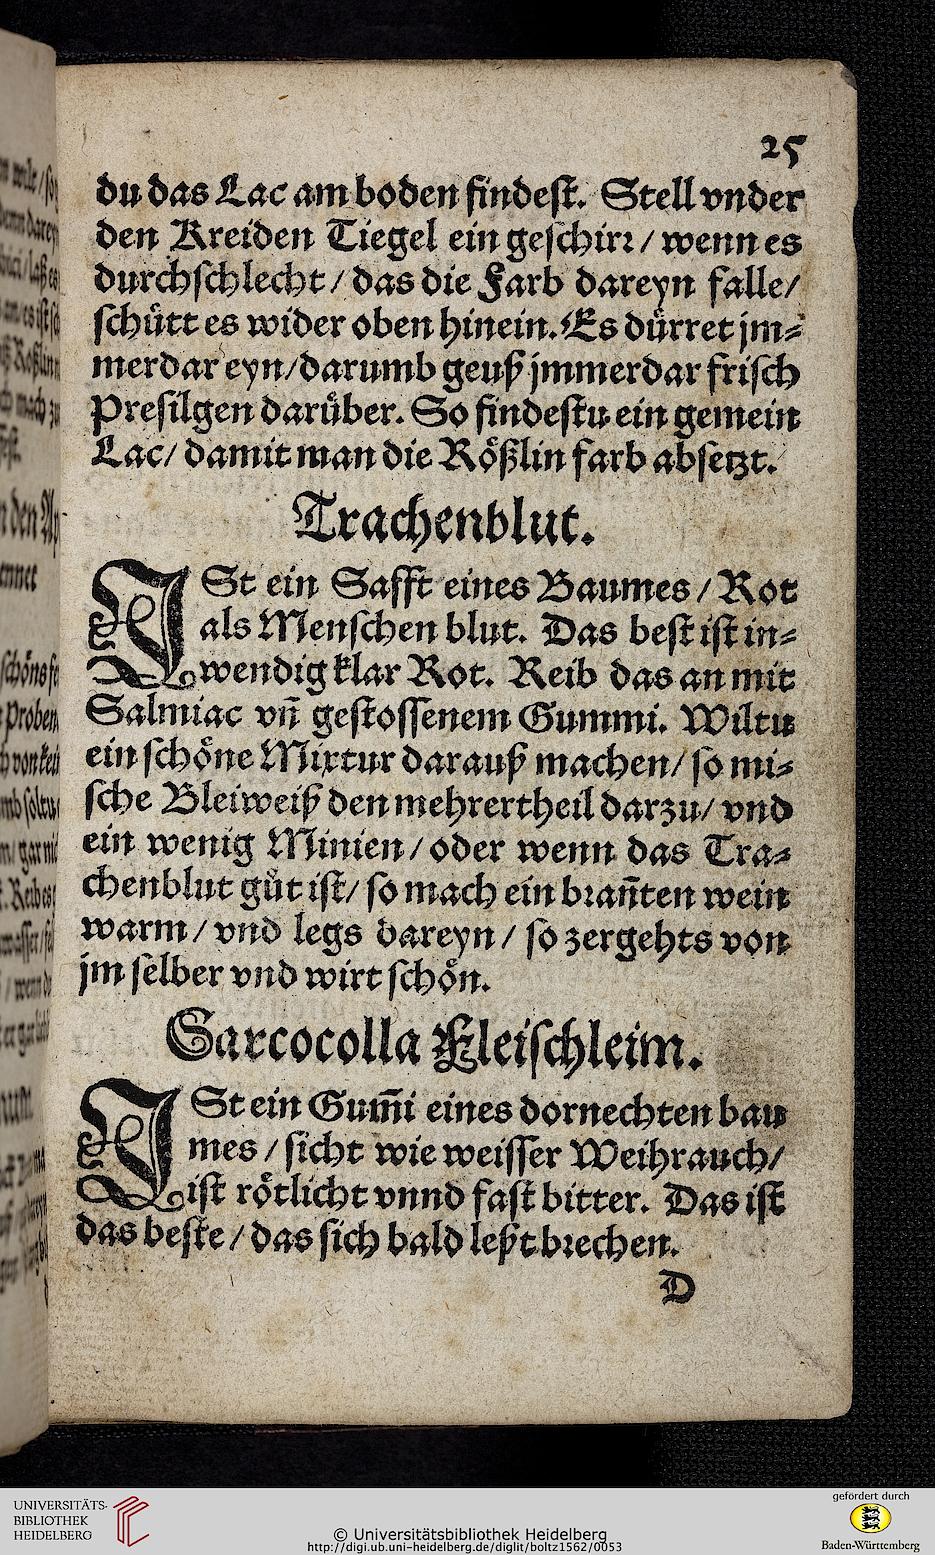 25
du das Lac am boden findest. Stell vnder
den Kreiden Tiegel ein geschirr / wenn es
durchschlecht / das die Farb dareyn falle /
schütt es wider oben hinein. Es dürret jm⸗
merdar eyn / darumb geuß jmmerdar frisch
Presilgen darüber. So findestu ein gemein
Lac / damit man die Rößlin farb absetzt.
Trachenblut.
ISt ein Safft eines Baumes / Rot
als Menschen blut. Das best ist in⸗
wendig klar Rot. Reib das an mit
Salmiac vñ gestossenem Gummi. Wiltu
ein schöne Mixtur darauß machen / so mi⸗
sche Bleiweiß den mehrertheil darzu / vnd
ein wenig Minien / oder wenn das Tra⸗
chenblut gůt ist / so mach ein brañten wein
warm / vnd legs dareyn / so zergehts von
jm selber vnd wirt schön.
Sarcocolla Fleischleim.
ISt ein Gum̃i eines dornechten bau
mes / sicht wie weisser Weihrauch /
ist rötlicht vnnd fast bitter. Das ist
das beste / das sich bald leßt brechen.
D
UNIVERSITÄTS-
BIBLIOTHEK
HEIDELBERG
© Universitätsbibliothek Heidelberg
http://digi.ub.uni-heidelberg.de/diglit/boltz1562/0053
gefördert durch
Baden-Württemberg